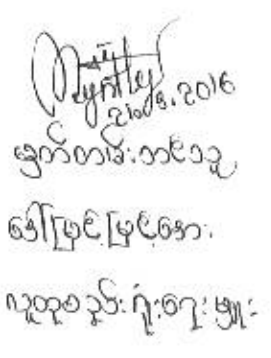 21.8.2016
မှတ်တမ်းတင်သူ
ဒေါ်မြင့်မြင့်အေး
လူထုစည်းရုံးရေးမှူး